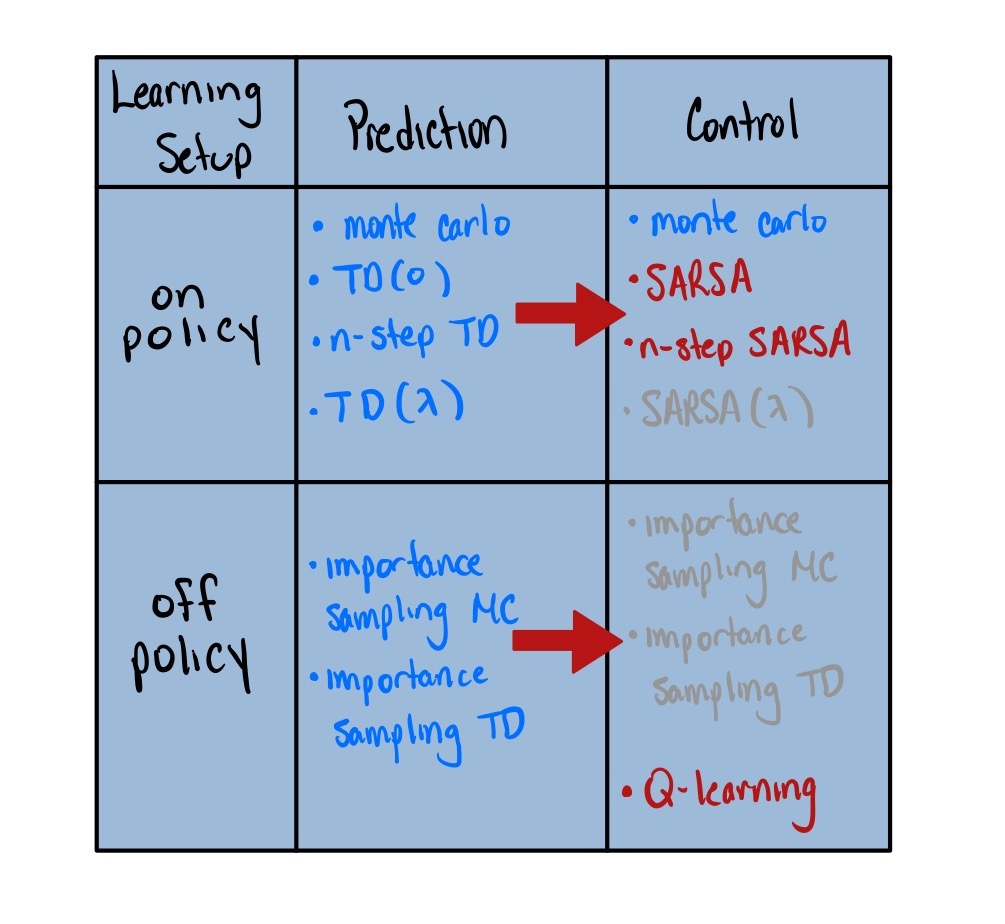 Learning
Setup
Prediction
Control
on
policy
• monte carlo
• TD(0)
• n-step TD
• TD(λ)
• monte carlo
• SARSA
• n-step SARSA
• SARSA(λ)
off
policy
• importance
sampling MC
• importance
sampling TD
• importance
sampling MC
• importance
sampling TD
• Q-learning